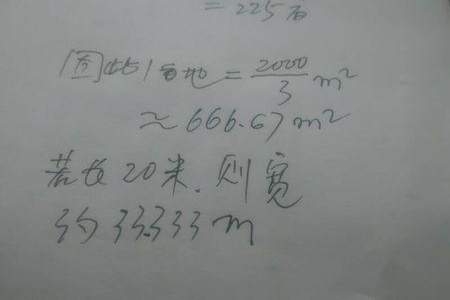 =225亩
因此1亩地=2000/3 m²
≈666.67m²
若长20米,则宽
约33.333m